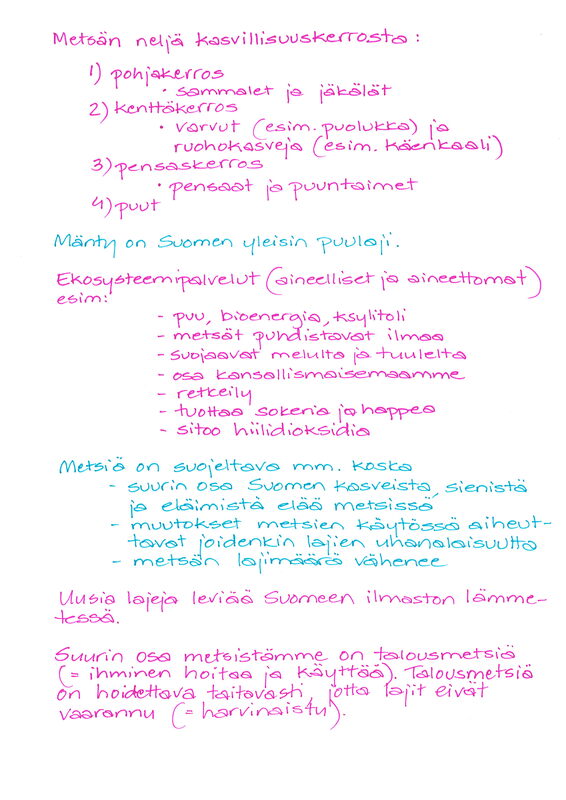 Metsän neljä kasvillisuuskerrosta:
1) pohjakerros
• sammalet ja jäkälät
2) kenttäkerros
• varvut (esim. puolukka) ja
ruohokasveja (esim. käenkaali)
3) pensaskerros
• pensaat ja puuntaimet
4) puut
Mänty on Suomen yleisin puulaji.
Ekosysteemipalvelut (aineelliset ja aineettomat)
esim:
- puu, bioenergia, ksylitoli
- metsät puhdistavat ilmaa
- suojaavat melulta ja tuulelta
- osa kansallismaisemaamme
- retkeily
- tuottaa sokeria ja happea
- sitoo hiilidioksidia
Metsiä on suojeltava mm. koska
- suurin osa Suomen kasveista, sienistä
ja eläimistä elää metsissä
- muutokset metsien käytössä aiheut-
tavat joidenkin lajien uhanalaisuutta
- metsän lajimäärä vähenee
Uusia lajeja leviää Suomeen ilmaston lämme-
tessä.
Suurin osa metsistämme on talousmetsiä
(= ihminen hoitaa ja käyttää). Talousmetsiä
on hoidettava taitavasti, jotta lajit eivät
vaarannu (= harvinaistu).